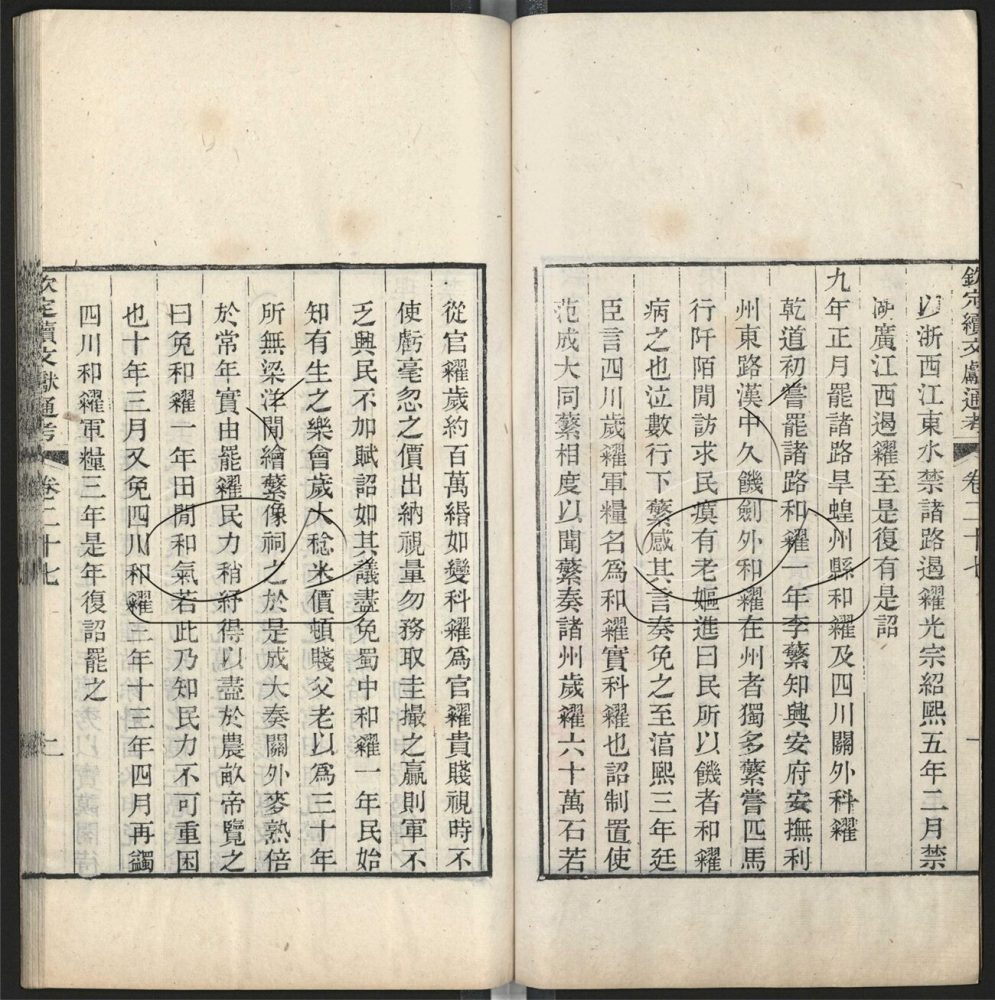 欽定續文獻通考 卷二十七 一
以浙西江東水禁諸路遏糴光宗紹熙五年二月禁
湖廣江西遏糴至是復有是詔
九年正月罷諸路旱蝗州縣和糴及四川關外科糴
乾道初嘗罷諸路和糴一年李蘩知興安府安撫利
州東路漢中久饑劍外和糴在州者獨多蘩嘗匹馬
行阡陌閒訪求民瘼有老嫗進曰民所以饑者和糴
病之也泣數行下蘩感其言奏免之至淳熙三年廷
臣言四川歲糴軍糧名爲和糴實科糴也詔制置使
范成大同蘩相度以聞蘩奏諸州歲糴六十萬石若
從官糴歲約百萬緡如變科糴爲官糴貴賤視時不
使虧毫忽之價出納視量勿務取圭撮之贏則軍不
乏興民不加賦詔如其議盡免蜀中和糴一年民始
知有生之樂會歲大稔米價頓賤父老以爲三十年
所無梁洋閒繪蘩像祠之於是成大奏關外麥熟倍
於常年實由罷糴民力稍紓得以盡於農畝帝覽之
曰免和糴一年田閒和氣若此乃知民力不可重困
也十年三月又免四川和糴三年十三年四月再蠲
四川和糴軍糧三年是年復詔罷之
欽定續文獻通考 卷二十七